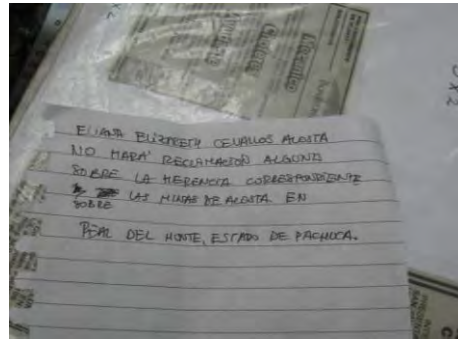 ELIANA ELIZABETH CEVALLOS ACOSTA
NO HARÁ RECLAMACIÓN ALGUNA
SOBRE LA HERENCIA CORRESPONDIENTE
SOBRE LAS MINAS DE ACOSTA EN
REAL DEL MONTE, ESTADO DE PACHUCA.